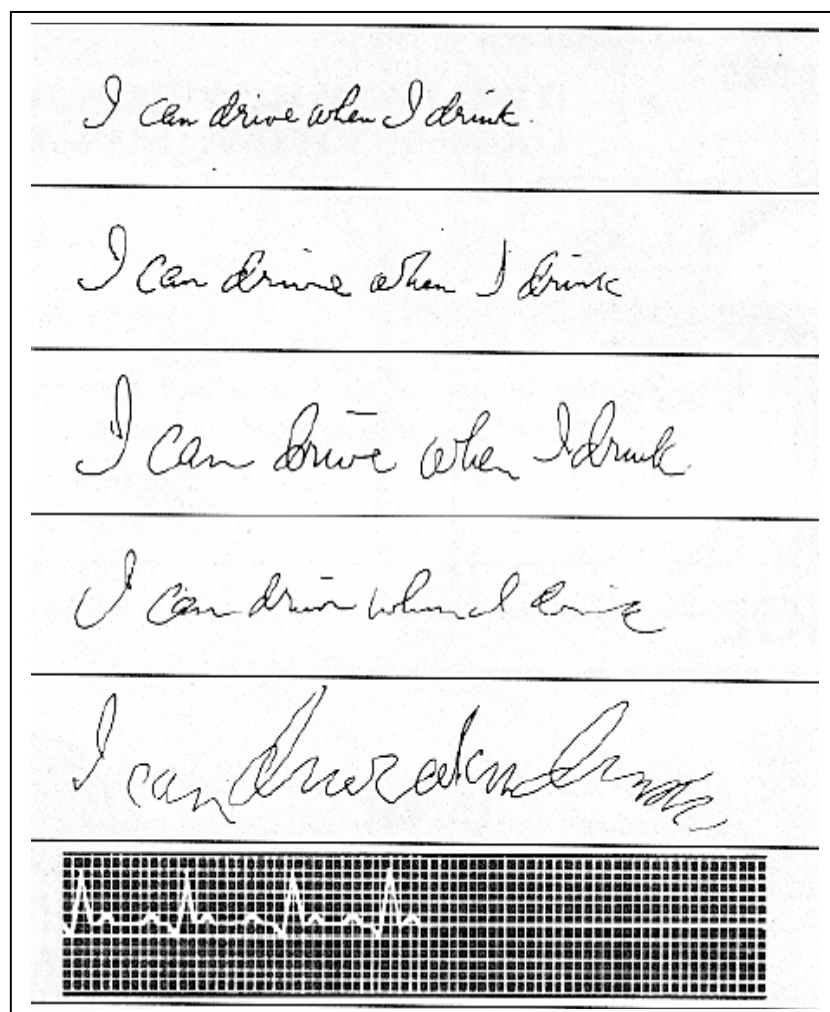 I can drive when I drink.
I can drive when I drink
I can drive when I drink.
I can drive when I drink
I can drive when I drink